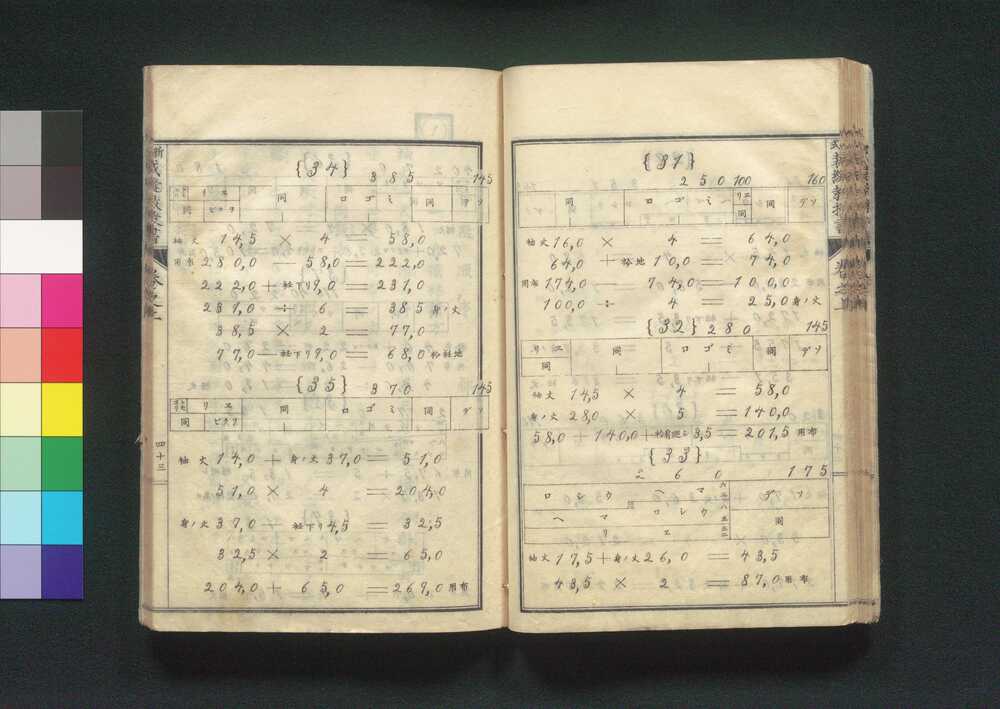 {31}
2 5 0 100 160
同 ロゴミ ハ エリ 同 同 ソデ
袖丈 16,0 × 4 = 64,0
64,0 + 衿地 10,0 = 74,0
用布 174,0 — 74,0 = 100,0
100,0 ÷ 4 = 25,0 身ノ丈
{32} 2 8 0 145
エリ 同 同 ロゴミ 同 ソデ
袖丈 14,5 × 4 = 58,0
身ノ丈 28,0 × 5 = 140,0
58,0 + 140,0 + 3,5 = 201,5 用布
{33}
2 6 0 175
ロシウ ヘマ ソデ
ヘマ ロシウ 同
エリ
袖丈 17,5 + 身ノ丈 26,0 = 43,5
43,5 × 2 = 87,0 用布
{34}
3 8 5 145
エリ 同 ロゴミ 同 ソデ
同
袖丈 14,5 × 4 58,0
用布 280,0 58,0 = 222,0
222,0 + 衽下リ 9,0 = 231,0
231,0 ÷ 6 = 38,5 身ノ丈
38,5 × 2 = 77,0
77,0 — 衽下リ 9,0 = 68,0 衿衽地
{35} 3 7 0 145
エリ 同 ロゴミ 同 ソデ
同
袖丈 14,0 + 身ノ丈 37,0 = 51,0
51,0 × 4 = 204,0
身ノ丈 37,0 — 衽下リ 4,5 = 32,5
32,5 × 2 = 65,0
204,0 + 65,0 = 269,0 用布
四十三